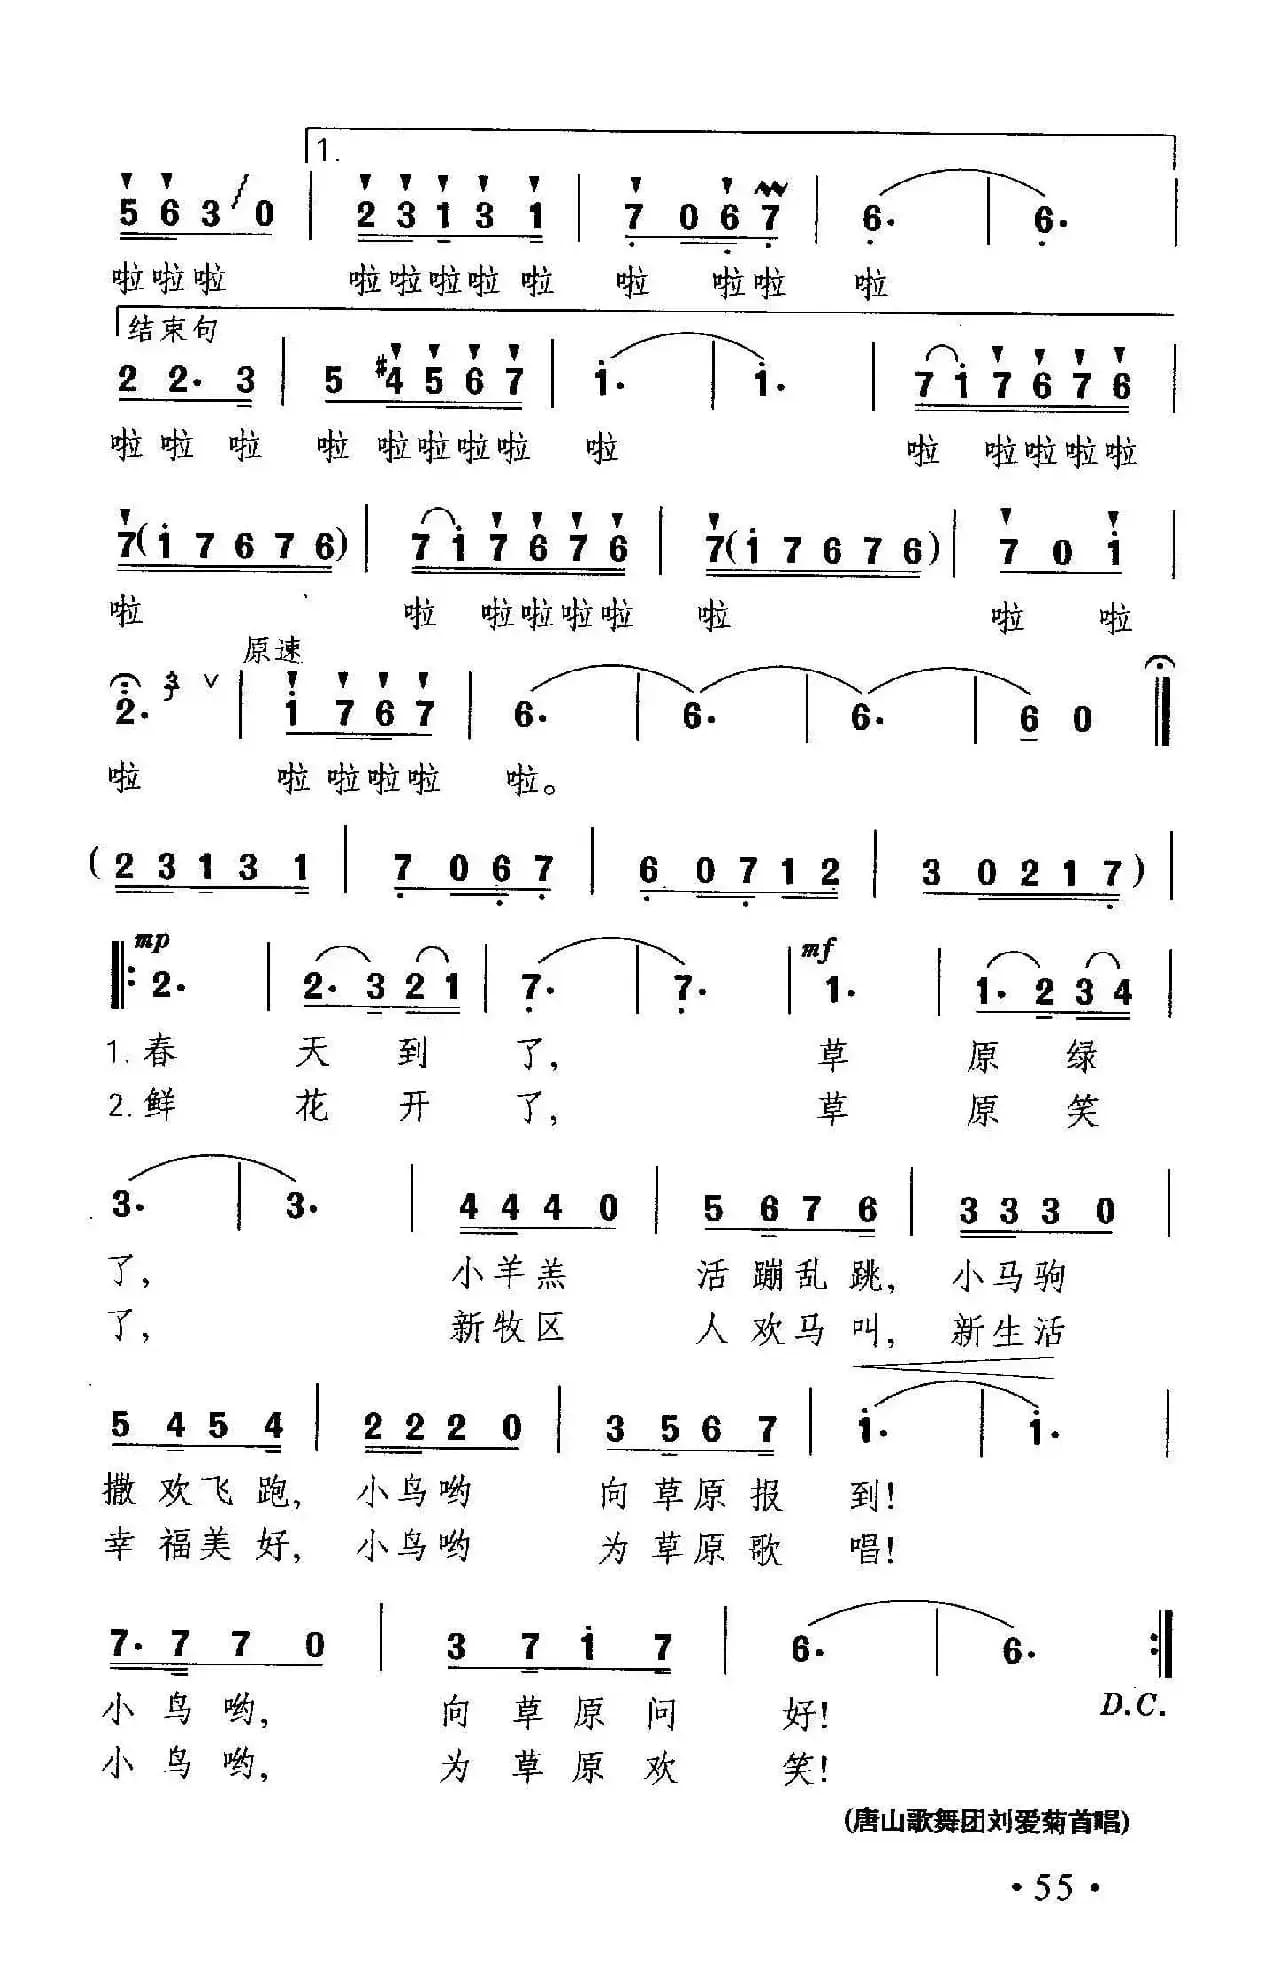 1.
5 6 3 0 | 2 3 1 3 1 | 7 0 6 7 | 6. | 6. |
啦啦啦 啦啦啦啦 啦 啦 啦啦 啦
结束句
2 2. 3 | 5 #4 5 6 7 | i. | i. | 7 i 7 6 7 6 |
啦 啦 啦 啦 啦啦啦啦 啦 啦 啦啦啦啦
7 (i 7 6 7 6) | 7 i 7 6 7 6 | 7 (i 7 6 7 6) | 7 0 i |
啦 啦 啦啦啦啦 啦 啦 啦
原速
2. 3 ∨ | i 7 6 7 | 6. | 6. | 6. | 6 0 ‖
啦 啦 啦啦啦 啦。
(2 3 1 3 1 | 7 0 6 7 | 6 0 7 1 2 | 3 0 2 1 7) |
mp mf
‖: 2. | 2. 3 2 1 | 7. | 7. | 1. | 1. 2 3 4 |
1. 春 天 到 了, 草 原 绿
2. 鲜 花 开 了, 草 原 笑
3. | 3. | 4 4 4 0 | 5 6 7 6 | 3 3 3 0 |
了, 小羊羔 活蹦乱跳, 小马驹
了, 新牧区 人欢马叫, 新生活
5 4 5 4 | 2 2 2 0 | 3 5 6 7 | i. | i. |
撒欢飞跑, 小鸟哟 向草原报 到!
幸福美好, 小鸟哟 为草原歌 唱!
7. 7 7 0 | 3 7 i 7 | 6. | 6. :‖
小鸟哟, 向草原问 好! D.C.
小鸟哟, 为草原欢 笑!
(唐山歌舞团刘爱菊首唱)
· 55 ·